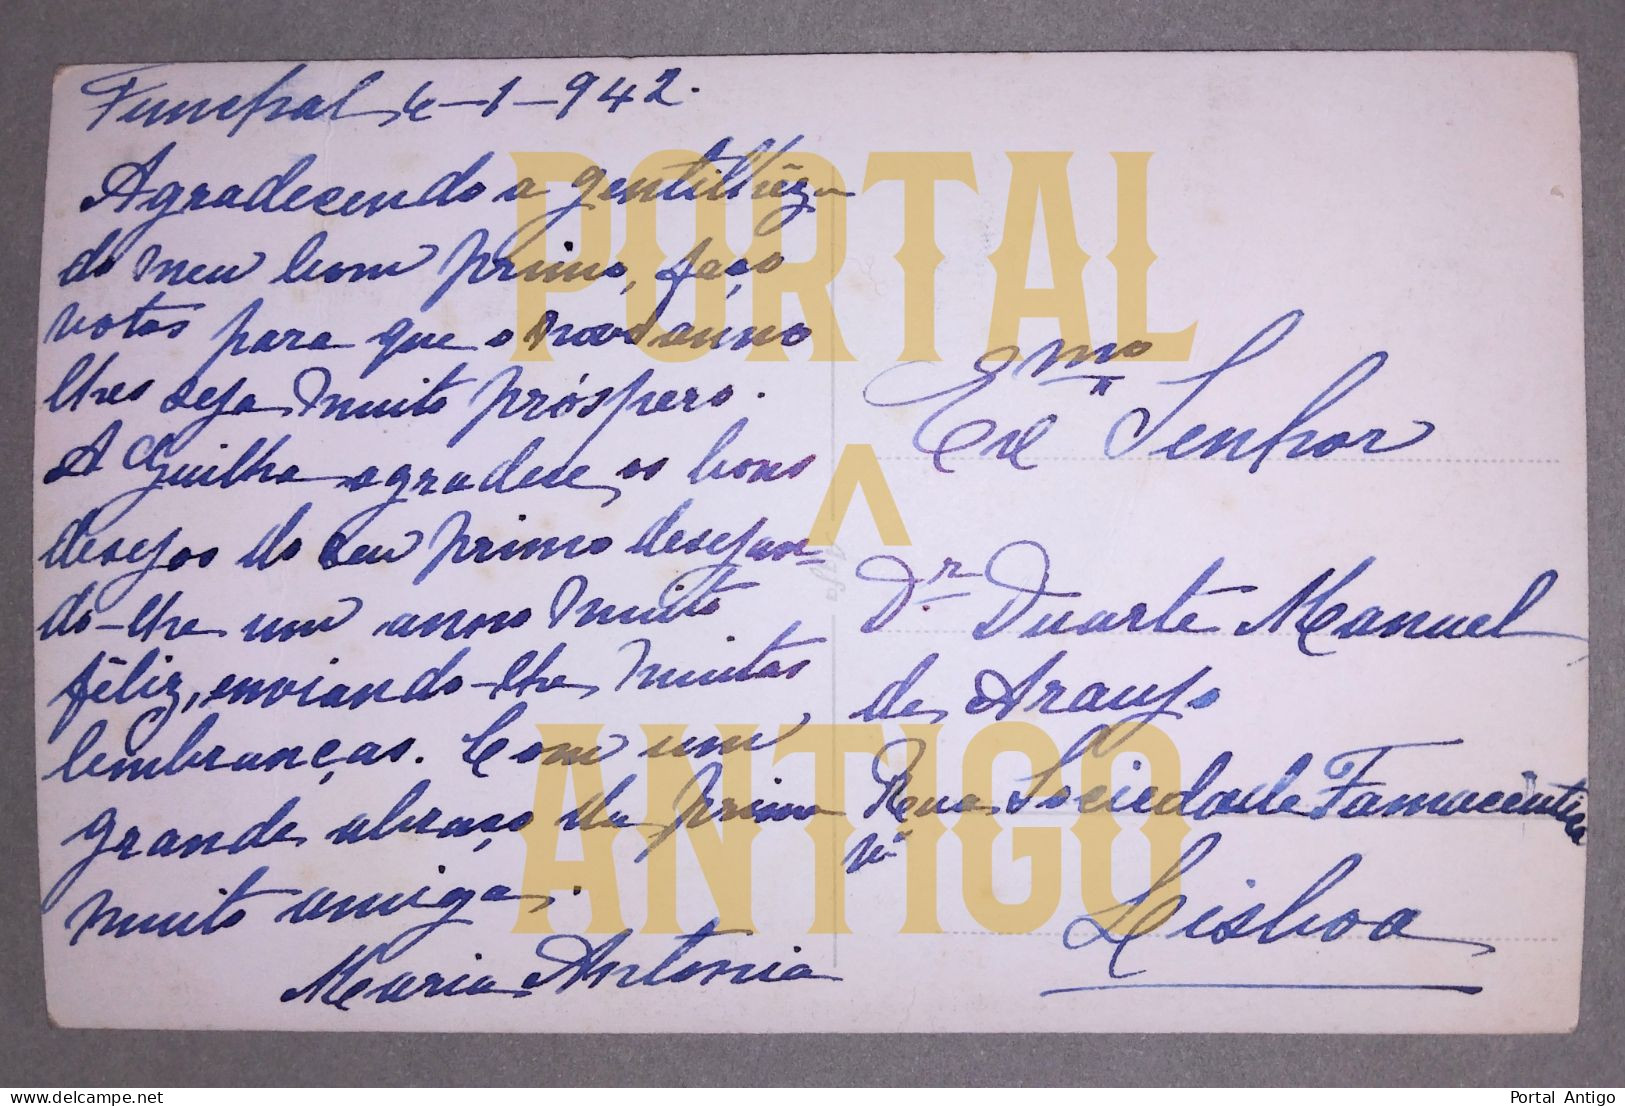 Funchal, 4-1-942.
Agradecendo a gentilhêza
do meu bom primo, faço
votos para que o novo anno
lhes seja muito próspero.
A Guilha agradece os bons
desejos do seu primo desejan-
do-lhe um anno muito
féliz, enviando-lhe muitas
lembranças. Com um
grande abraço da prima
muito amiga.
Maria Antonia
Exmo Senhor
Dr. Duarte Manuel
de Araujo
Rua Sociedade Famacêutica
nº
Lisboa
Agfa
PORTAL
ANTIGO
Portal Antigo